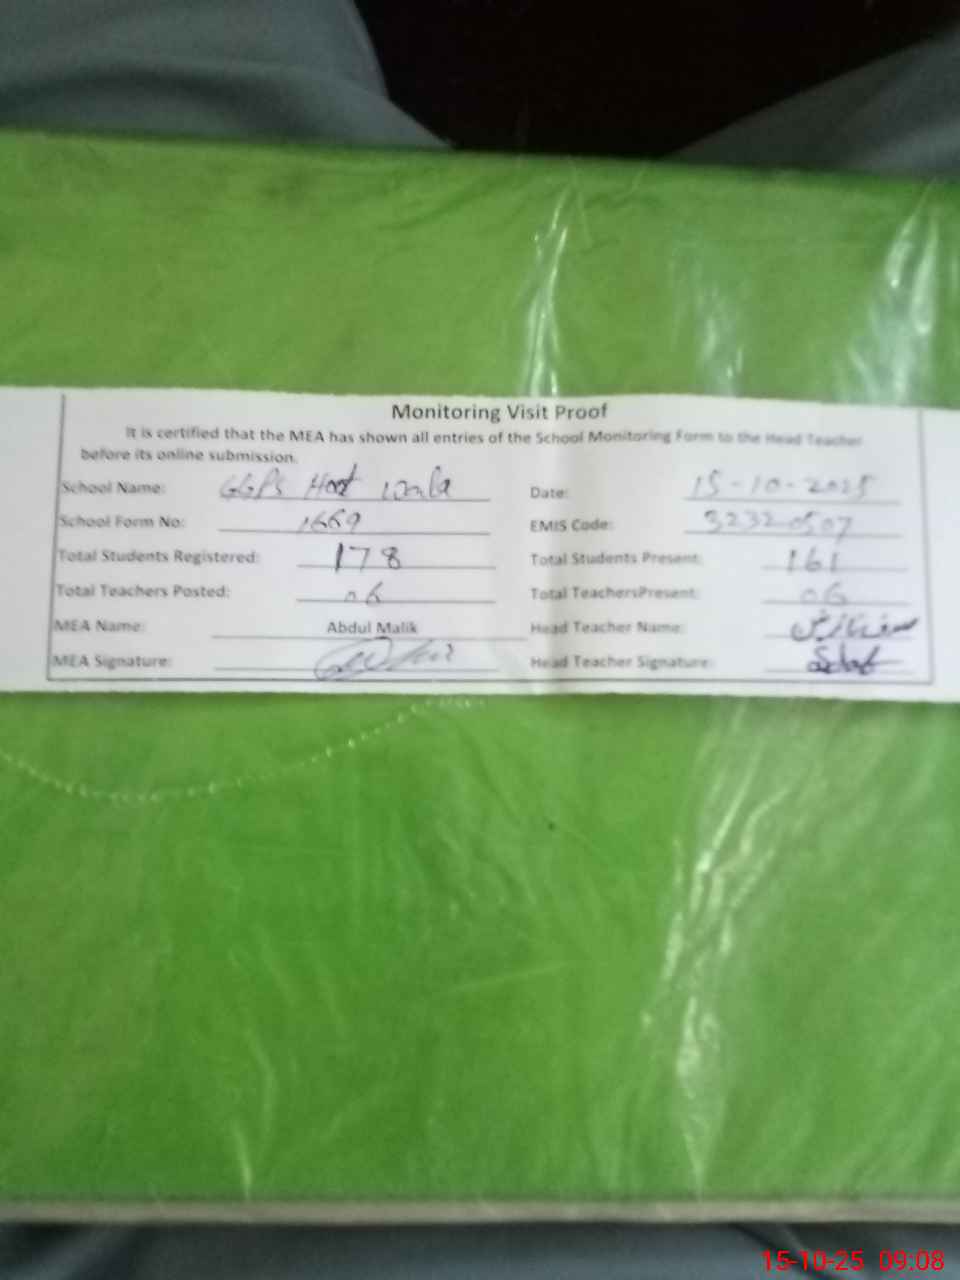 Monitoring Visit Proof
It is certified that the MEA has shown all entries of the School Monitoring Form to the Head Teacher
before its online submission.
School Name: GGPS Hoot wala Date: 15-10-2025
School Form No: 1669 EMIS Code: 32320507
Total Students Registered: 178 Total Students Present: 161
Total Teachers Posted: 06 Total TeachersPresent: 06
MEA Name: Abdul Malik Head Teacher Name:
MEA Signature: Head Teacher Signature:
15-10-25 09:08